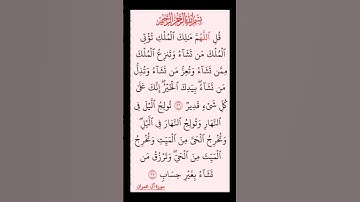 بِسْمِ اللَّهِ الرَّحْمَٰنِ الرَّحِيمِ
قُلِ ٱللَّهُمَّ مَٰلِكَ ٱلْمُلْكِ تُؤْتِى
ٱلْمُلْكَ مَن تَشَآءُ وَتَنزِعُ ٱلْمُلْكَ
مِمَّن تَشَآءُ وَتُعِزُّ مَن تَشَآءُ وَتُذِلُّ
مَن تَشَآءُ ۖ بِيَدِكَ ٱلْخَيْرُ ۖ إِنَّكَ عَلَىٰ
كُلِّ شَىْءٍ قَدِيرٌ ٢٦ تُولِجُ ٱلَّيْلَ فِى
ٱلنَّهَارِ وَتُولِجُ ٱلنَّهَارَ فِى ٱلَّيْلِ ۖ
وَتُخْرِجُ ٱلْحَىَّ مِنَ ٱلْمَيِّتِ وَتُخْرِجُ
ٱلْمَيِّتَ مِنَ ٱلْحَىِّ ۖ وَتَرْزُقُ مَن
تَشَآءُ بِغَيْرِ حِسَابٍ ٢٧
سورة آل عمران